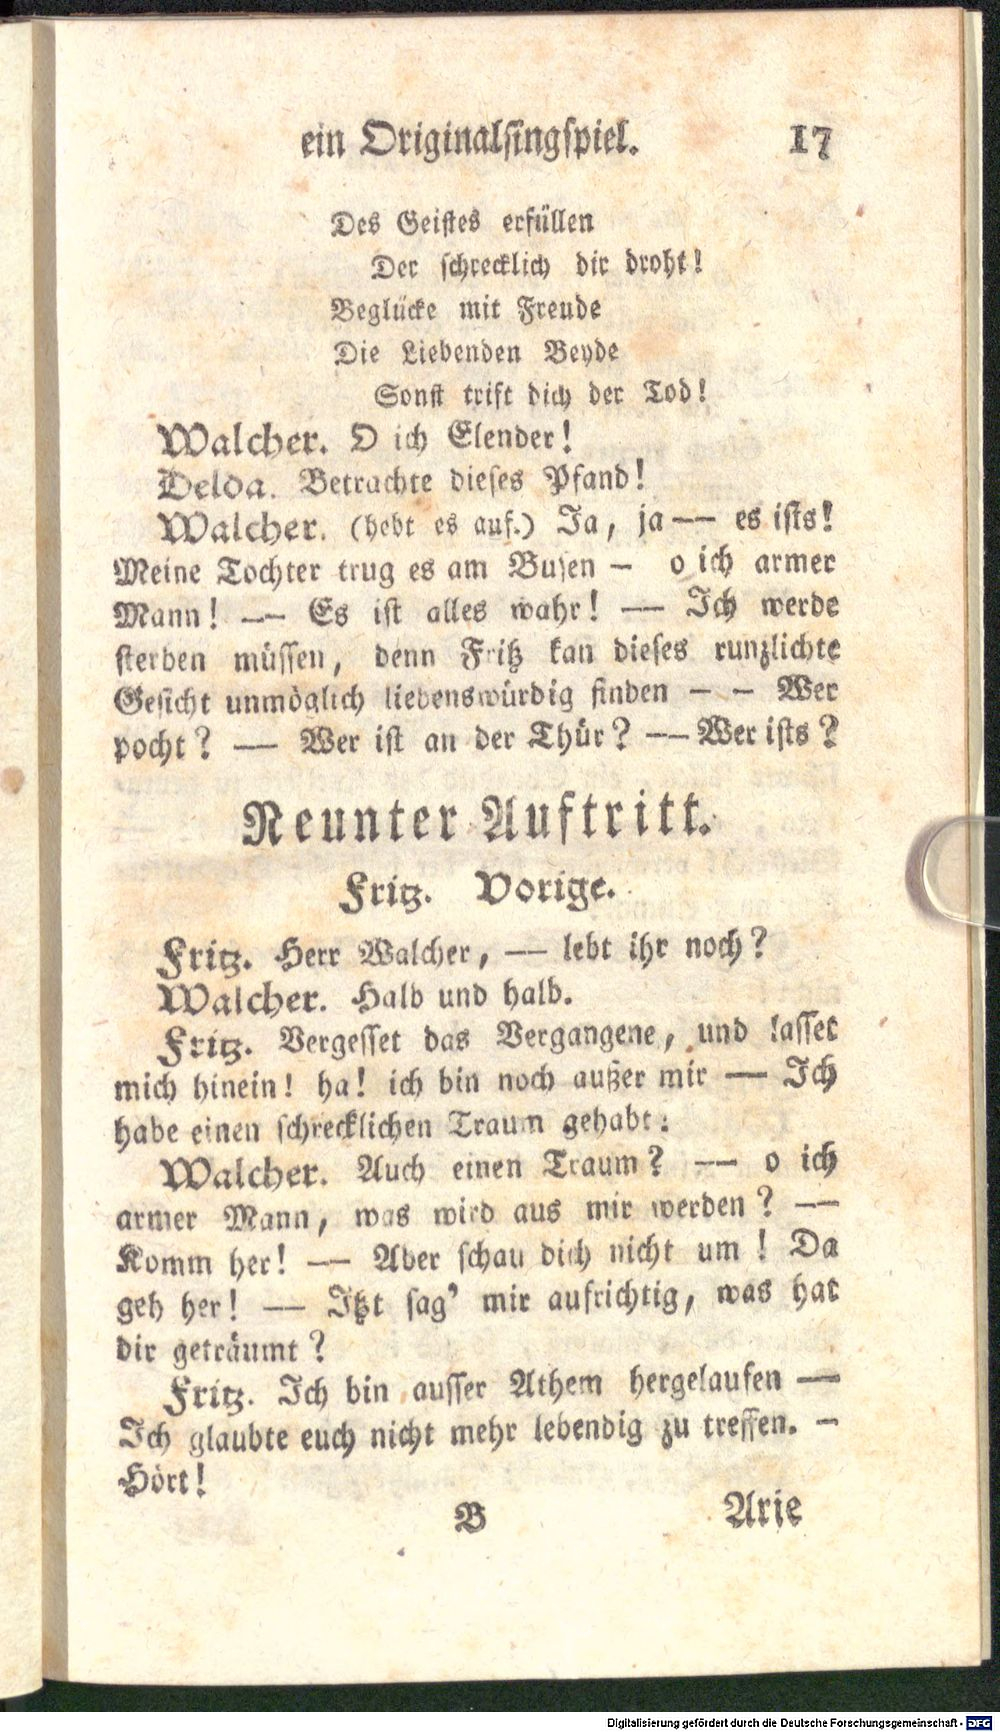 ein Originalsingspiel. 17
Des Geistes erfüllen
Der schrecklich dir droht!
Beglücke mit Freude
Die Liebenden Beyde
Sonst trift dich der Tod!
Walcher. O ich Elender!
Delda. Betrachte dieses Pfand!
Walcher. (hebt es auf.) Ja, ja — es ists!
Meine Tochter trug es am Busen – o ich armer
Mann! — Es ist alles wahr! — Ich werde
sterben müssen, denn Fritz kan dieses runzlichte
Gesicht unmöglich liebenswürdig finden – – Wer
pocht? — Wer ist an der Thür? — Wer ists?
Neunter Auftritt.
Fritz. Vorige.
Fritz. Herr Walcher, — lebt ihr noch?
Walcher. Halb und halb.
Fritz. Vergesset das Vergangene, und lasset
mich hinein! ha! ich bin noch außer mir — Ich
habe einen schrecklichen Traum gehabt:
Walcher. Auch einen Traum? — o ich
armer Mann, was wird aus mir werden? —
Komm her! — Aber schau dich nicht um! Da
geh her! — Itzt sag' mir aufrichtig, was hat
dir geträumt?
Fritz. Ich bin ausser Athem hergelaufen —
Ich glaubte euch nicht mehr lebendig zu treffen. –
Hört!
B Arie
Digitalisierung gefördert durch die Deutsche Forschungsgemeinschaft - DFG